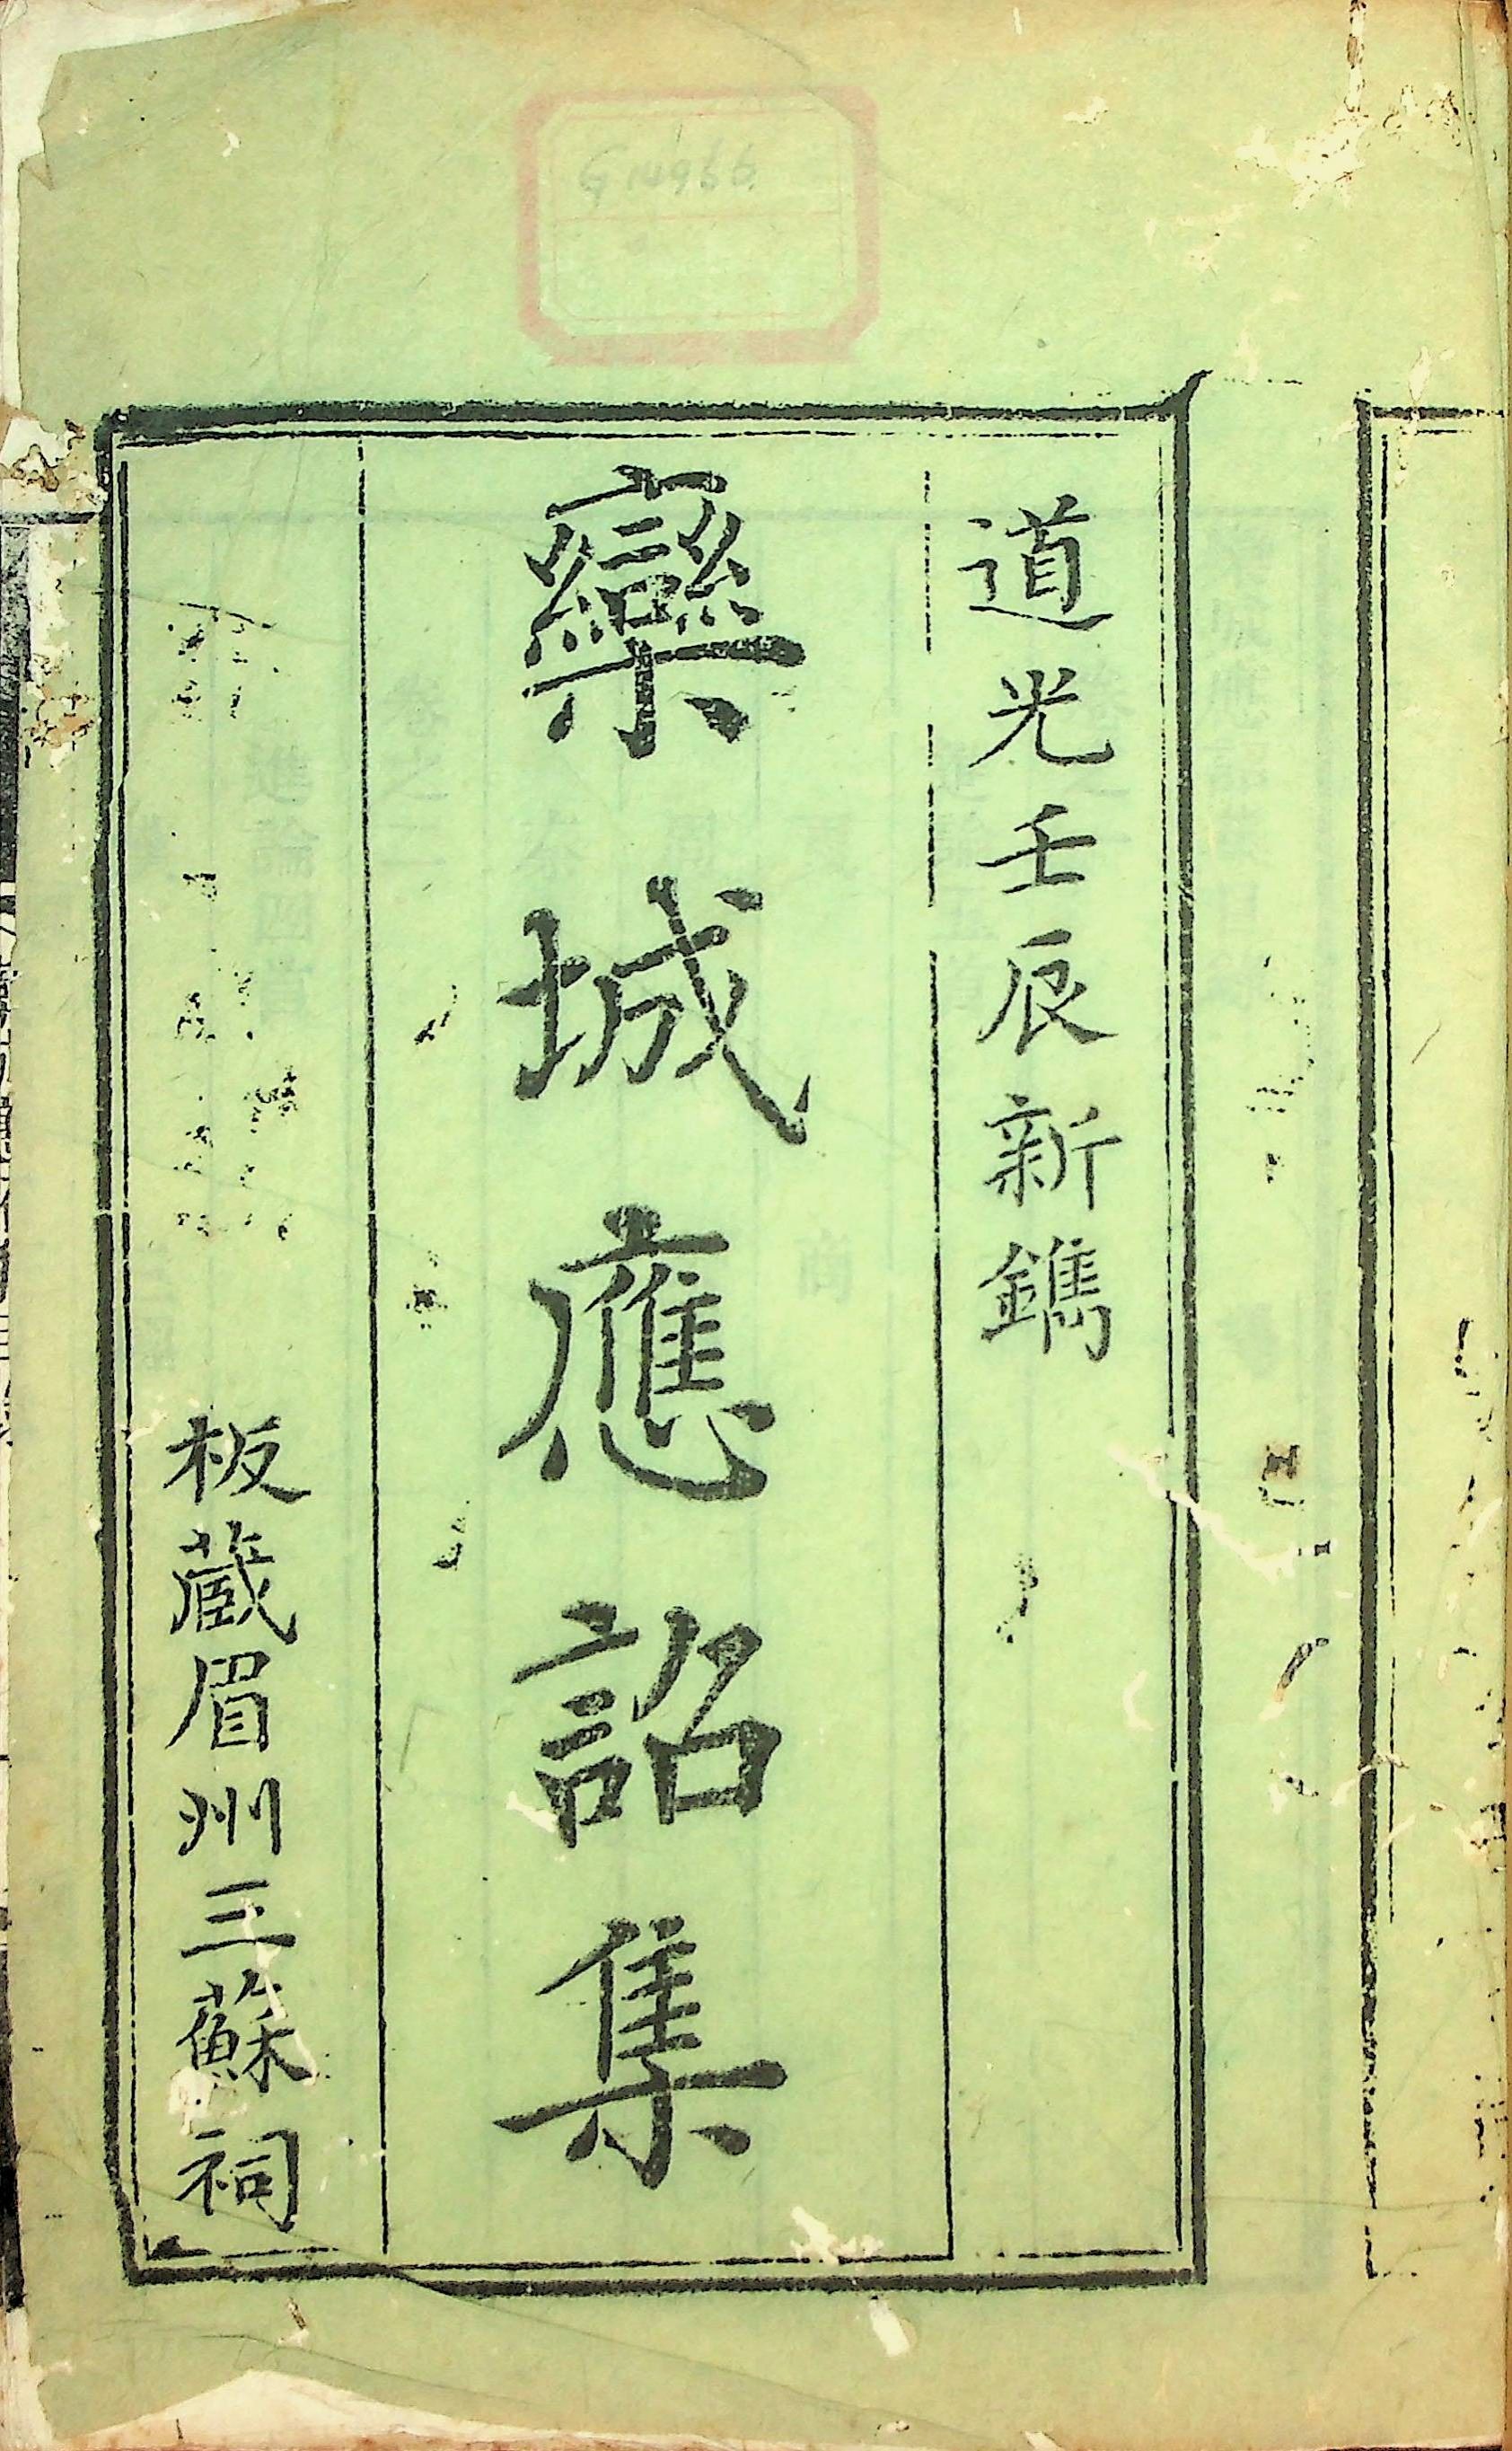 道光壬辰新鐫
欒城應詔集
板蔵眉州三蘇祠